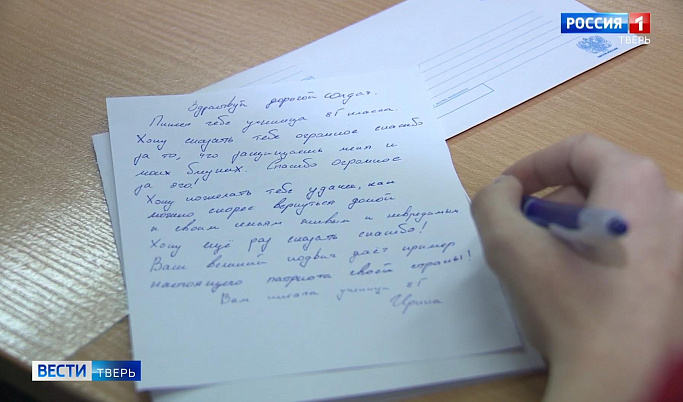 РОССИЯ 1
ТВЕРЬ
Здравствуй дорогой солдат.
Пишет тебе ученица 8Г класса.
Хочу сказать тебе огромное спасибо
за то, что защищаешь меня и
моих близких. Спасибо огромное
за это!
Хочу пожелать тебе удачи, как
можно скорее вернуться домой
к своим семьям живым и невредимым
Хочу ещё раз сказать спасибо!
Ваш великий подвиг даёт пример
настоящего патриота своей страны!
Вам писала ученица 8Г
Ирина
ВЕСТИ ТВЕРЬ